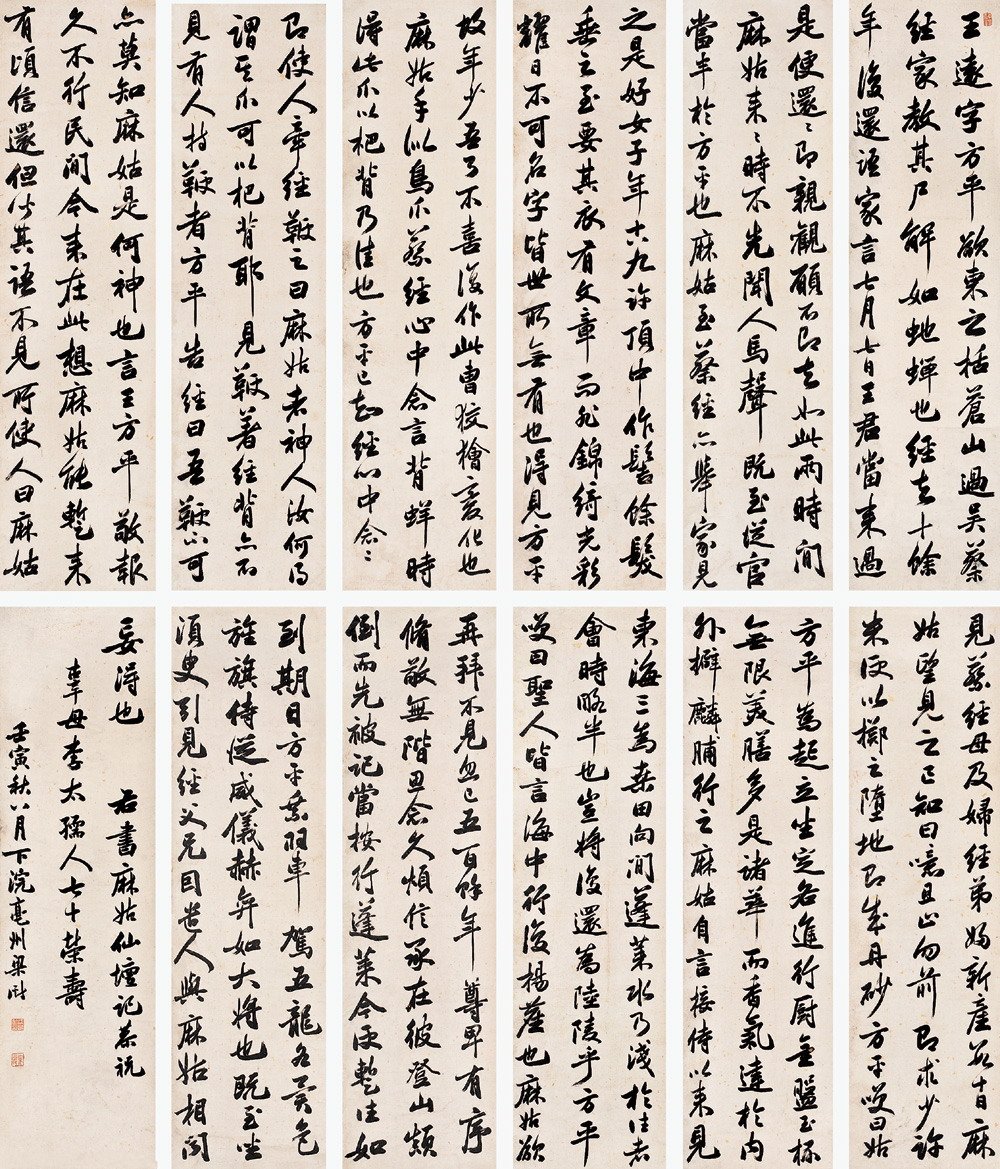 王遠字方平欲東之括蒼山過吳蔡
經家教其尸解如虵蟬也經去十餘
年後還語家言七月七日王君當來過
是便還〻即親覲願不即去如此兩時間
麻姑來〻時不先聞人馬聲既至從官
當半於方平也麻姑至蔡經亦舉家見
之是好女子年十八九許頂中作髻餘髮
垂之至要其衣有文章而非錦綺光彩
耀日不可名字皆世所無有也得見方平
故年少吾了不喜復作此曹狡獪變化也
麻姑手似鳥爪蔡經心中念言背蛘時
得此爪以杷背乃佳也方平已知經心中念〻
即使人牽經鞭之曰麻姑者神人汝何忽
謂其爪可以杷背耶見鞭著經背亦不
見有人持鞭者方平告經曰吾鞭不可
亦莫知麻姑是何神也言王方平敬報
久不行民間今來在此想麻姑能暫來
有頃信還但聞其語不見所使人曰麻姑
見蔡經母及婦經弟婦新產數十日麻
姑望見之已知曰噫且止勿前即求少許
米便以擲之墮地即成丹砂方平笑曰姑
方平為起立坐定各進行廚金盤玉杯
無限美膳多是諸華而香氣達於內
外擗麟脯行之麻姑自言接侍以來見
東海三為桑田向間蓬萊水乃淺於往者
會時略半也豈將復還為陸陵乎方平
笑曰聖人皆言海中行復揚塵也麻姑欲
再拜不見忽已五百餘年尊卑有序
脩敬無階思念久煩信承在彼登山顛
倒而先被記當按行蓬萊今便暫往如
到期日方平乘羽車駕五龍各異色
旌旗侍從威儀赫弈如大將也既至坐
須臾引見經父兄因遣人與麻姑相聞
妄得也 右書麻姑仙壇記恭祝
辜母李太孺人七十榮壽
壬寅秋八月下浣亳州梁巘